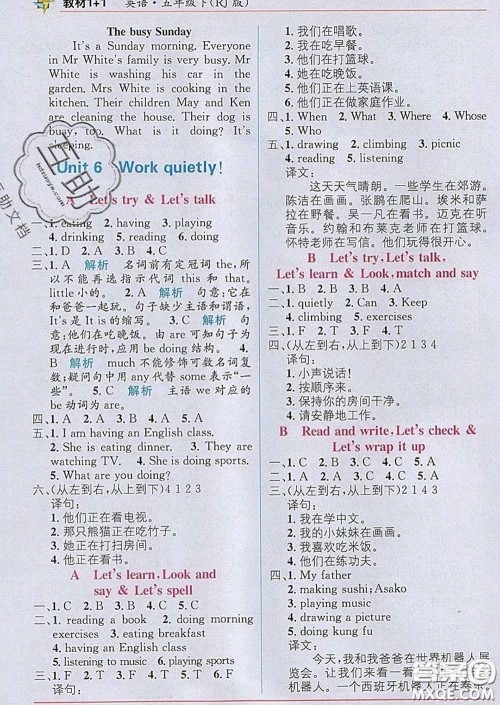 教材1+1 英语·五年级下(RJ版)
The busy Sunday
It's a Sunday morning. Everyone
in Mr White's family is very busy. Mr
White is washing his car in the
garden. Mrs White is cooking in the
kitchen. Their children May and Ken
are cleaning the house. Their dog is
busy, too. What is it doing? It's
sleeping.
Unit 6 Work quietly!
A Let's try & Let's talk
一、1. eating 2. having 3. playing
4. drinking 5. reading 6. doing
二、1. D 2. A 3. B 4. C
三、1. A 解析 名词前有定冠词 the,所
以不能再选指示代词 this 和 that。
little 小的。 2. A 解析 句意:它在
和爸爸一起玩。句子缺少主语和谓语。
It's 是 It is 的缩写。 3. C 解析 句
意:他们在吃晚饭。由 are 可知句子为
现在进行时,应用 be doing 结构。 4.
B 解析 much 不能修饰可数名词复
数;疑问句中用 any 代替 some 表示"一
些"。 5. B 解析 主语 we 对应的
be 动词为 are。
四、1. A 2. B 3. B 4. A 5. A
五、1. I am having an English class.
2. They are sleeping. 3. They are
watching TV. 4. She is doing sports.
5. What are you doing?
六、(从左到右,从上到下)4 1 2 3
译句:
1. 他们正在看电视。
2. 那只熊猫正在吃竹子。
3. 她正在打扫房间。
4. 他们正在看书。
A Let's learn, Look and
say & Let's spell
一、1. C 2. A 3. B 4. B 5. A
二、1. reading a book 2. doing morning
exercises 3. eating breakfast
4. having an English class
5. listening to music 6. playing sports
三、译句:
1. 我们在唱歌。
2. 我在吃早餐。
3. 他们正在打篮球。
4. 她在吃晚饭。
5. 他们正在上英语课。
6. 他们正在做家庭作业。
四、1. When 2. What 3. Where 4. Whose
5. Who
五、1. drawing 2. climbing 3. picnic
4. reading 5. listening
译文:
这天天气晴朗。一些学生在郊游。
陈洁在画画。张鹏在爬山。埃米和萨
拉在野餐。吴一凡在看书。迈克在听
音乐。约翰和布莱克老师在打篮球。
怀特老师在写信。他们玩得很开心。
B Let's try, Let's talk,
Let's learn & Look, match and say
一、1. quietly 2. Can 3. Keep
4. climbing 5. drinking
二、1. C 2. A 3. B 4. D
三、1. F 2. T 3. F 4. T
四、(从左到右,从上到下)2 1 3 4
译句:
1. 小声说话!
2. 按顺序来。
3. 保持你的房间干净。
4. 请安静地工作。
B Read and write, Let's check &
Let's wrap it up
一、1. C 2. C 3. B 4. A 5. A
二、1. F 2. T 3. F 4. F 5. T
三、(从左到右,从上到下)2 1 4 3
译句:
1. 我在学中文。
2. 我的小妹妹在画画。
3. 我喜欢吃米饭。
4. 他们在练功夫。
四、1. My father
2. making sushi; Asako
3. playing music
4. drawing a picture
5. doing kung fu
译文:
今天,我和我爸爸在世界机器人
展览会。让我们去看看机器人
们。一个西班牙机器人正在奏乐。
互助
互助文档
答案圈
MXQE.COM